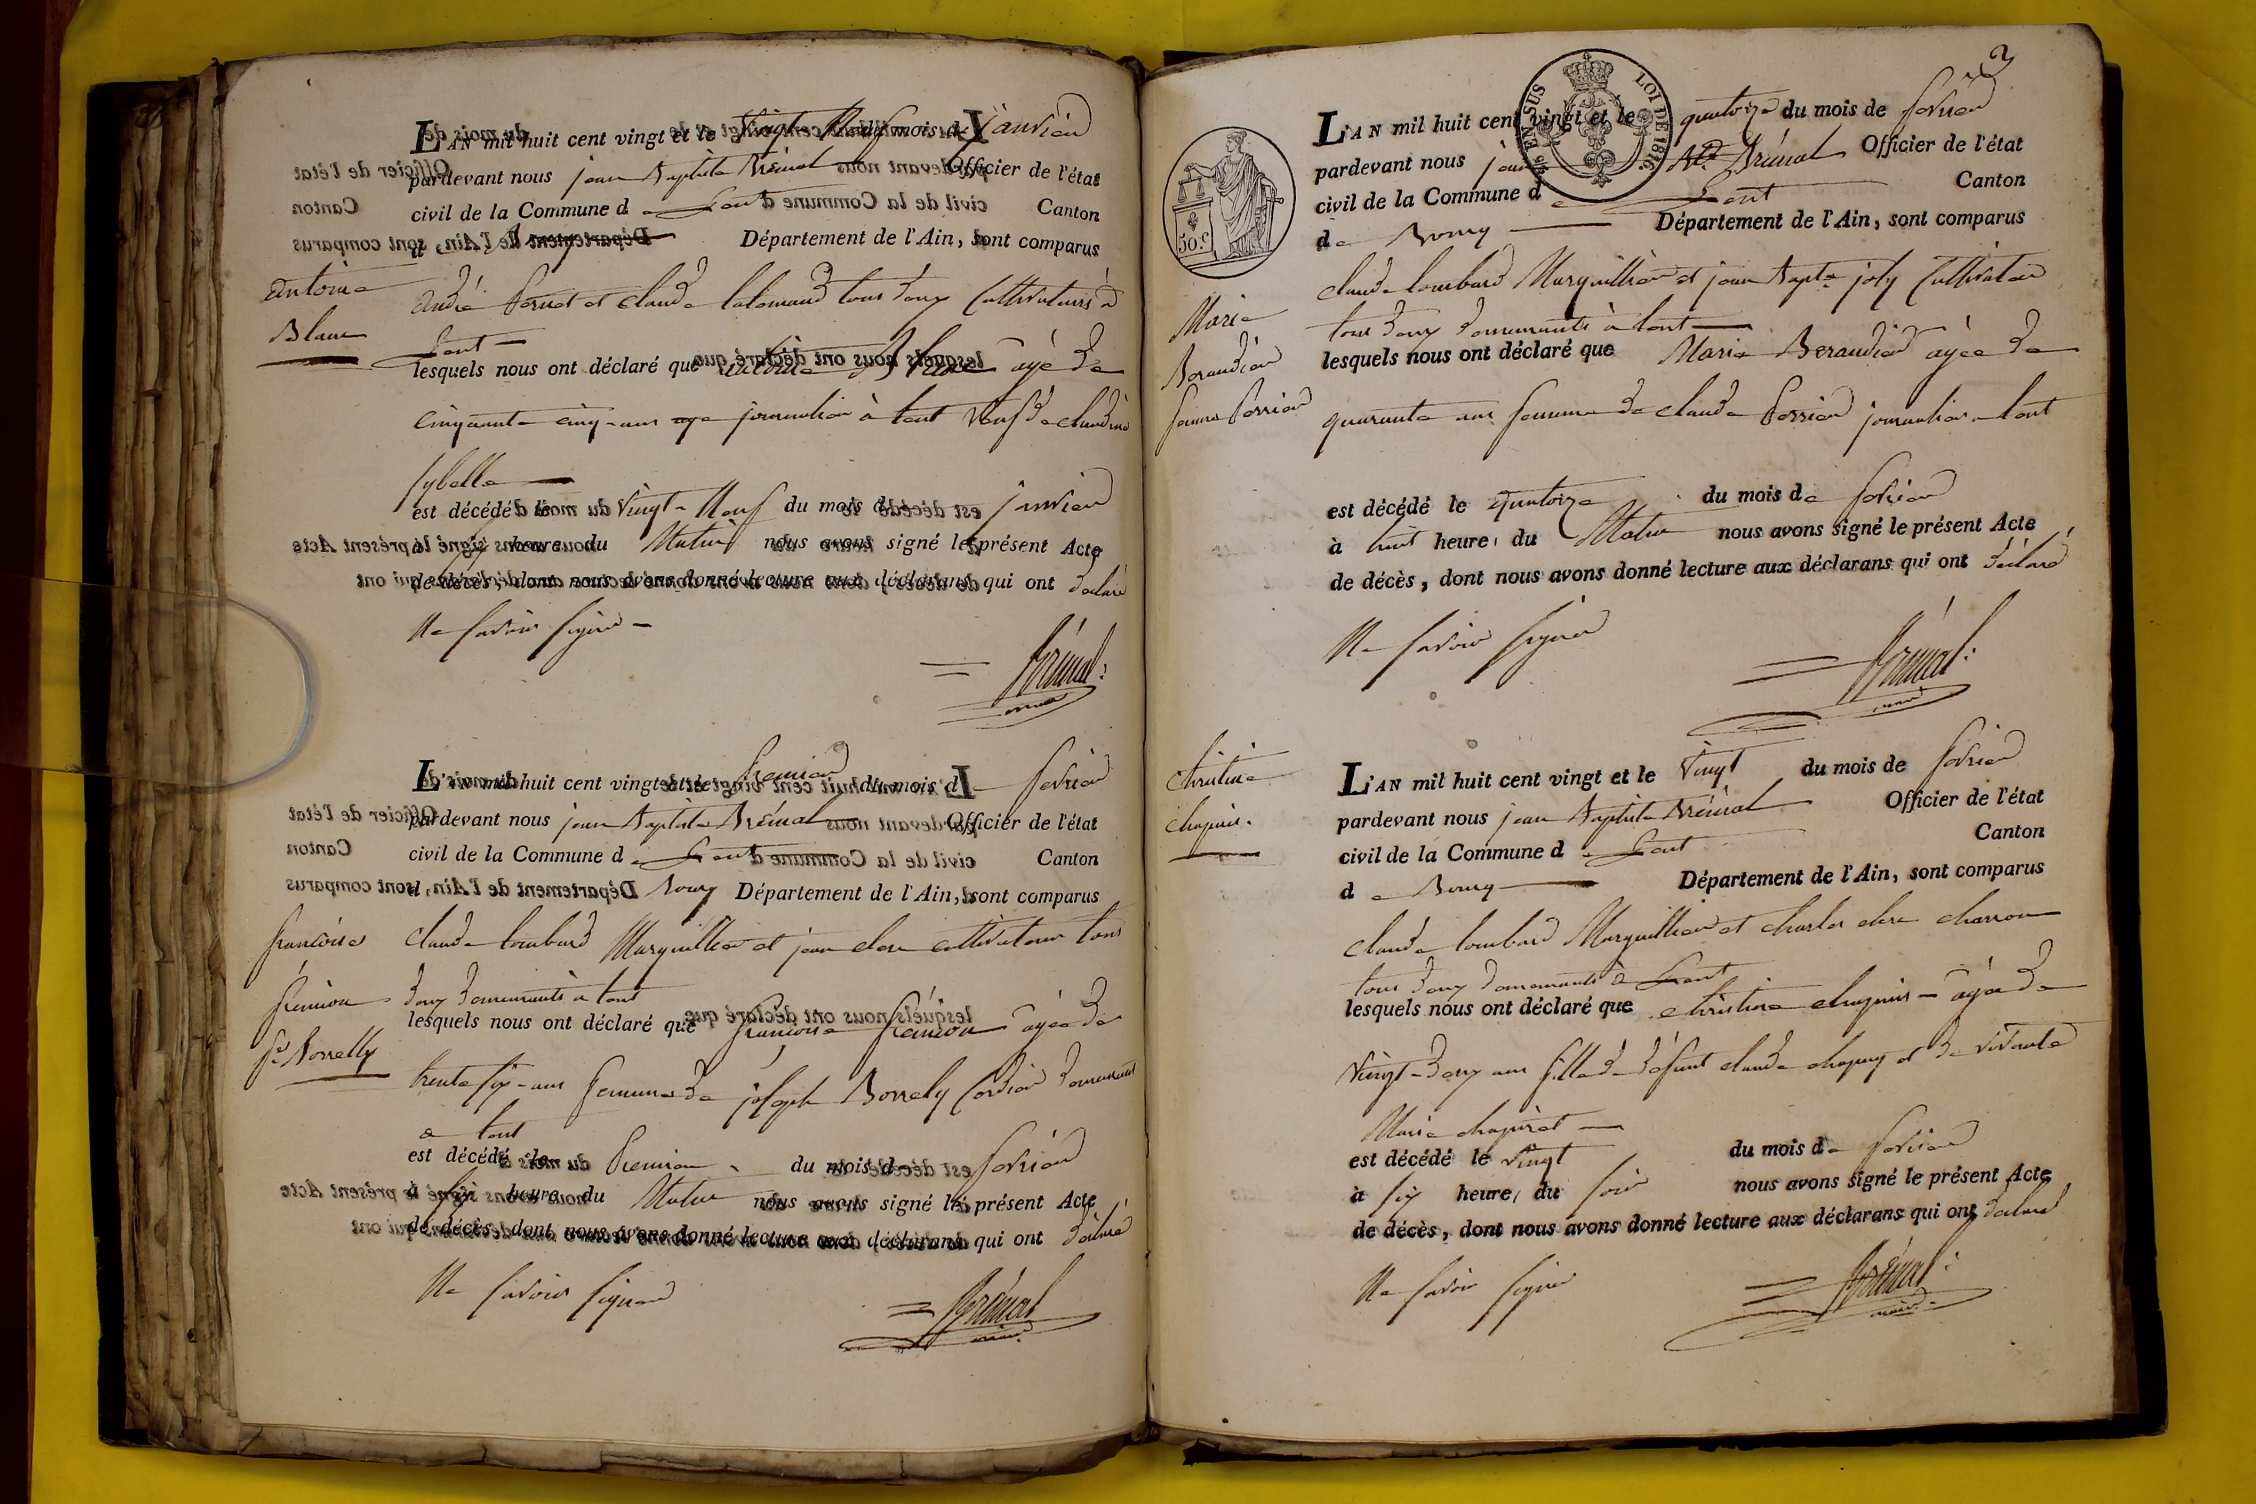 L'AN mil huit cent vingt et le Vingt Neuf du mois de janvier
pardevant nous jean Baptiste Brévial Officier de l'état
civil de la Commune de Lent Canton
de Bourg Département de l'Ain, sont comparus
antoine
Blanc
andré et claude tous deux Cultivateurs à
Lent
lesquels nous ont déclaré que antoine Blanc agé de
cinquante cinq ans journalier à lent veuf de claudine
sybelle
est décédé le Vingt-Neuf du mois de janvier
à six heure du Matin nous avons signé le présent Acte
de décès, dont nous avons donné lecture aux déclarans qui ont déclaré
Ne savoir signer
L'AN mil huit cent vingt et le premier du mois de fevrier
pardevant nous jean Baptiste Brévial Officier de l'état
civil de la Commune de Lent Canton
de Bourg Département de l'Ain, sont comparus
françoise
fe Borrelly
claude lombard Marguillier et jean clere cultivateur tous
deux demeurants à lent
lesquels nous ont déclaré que françoise agée de
trente six ans femme de joseph Borrely Cordier demeurant
a lent
est décédé le Premier du mois de fevrier
à six heure du Matin nous avons signé le présent Acte
de décès, dont nous avons donné lecture aux déclarans qui ont déclaré
Ne savoir signer
2
EN SUS LOI DE 1816
50.c
L'AN mil huit cent vingt et le quatorze du mois de fevrier
pardevant nous jean Bte Brévial Officier de l'état
civil de la Commune de Lent Canton
de Bourg Département de l'Ain, sont comparus
Marie
Beraudier
femme Perrier
claude lombard Marguillier et jean Bapte joly Cultivateur
tous deux demeurants à lent
lesquels nous ont déclaré que Marie Beraudier agée de
quarante ans femme de claude Perrier journalier a lent
est décédé le quatorze du mois de fevrier
à huit heure du Matin nous avons signé le présent Acte
de décès, dont nous avons donné lecture aux déclarans qui ont déclaré
Ne savoir signer
christine
chapuis.
L'AN mil huit cent vingt et le Vingt du mois de fevrier
pardevant nous jean Baptiste Brévial Officier de l'état
civil de la Commune de Lent Canton
de Bourg Département de l'Ain, sont comparus
claude lombard Marguillier et charles clere charron
tous deux demeurants à Lent
lesquels nous ont déclaré que christine chapuis agée de
vingt-deux ans fille de défunt claude chapuy et de vivante
Marie
est décédé le vingt du mois de fevrier
à six heure du soir nous avons signé le présent Acte
de décès, dont nous avons donné lecture aux déclarans qui ont déclaré
Ne savoir signer